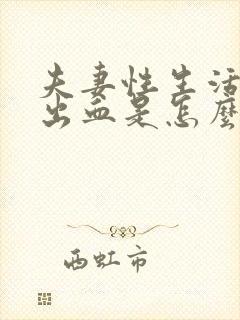 夫妻性生活
出血是怎麼
西虹市